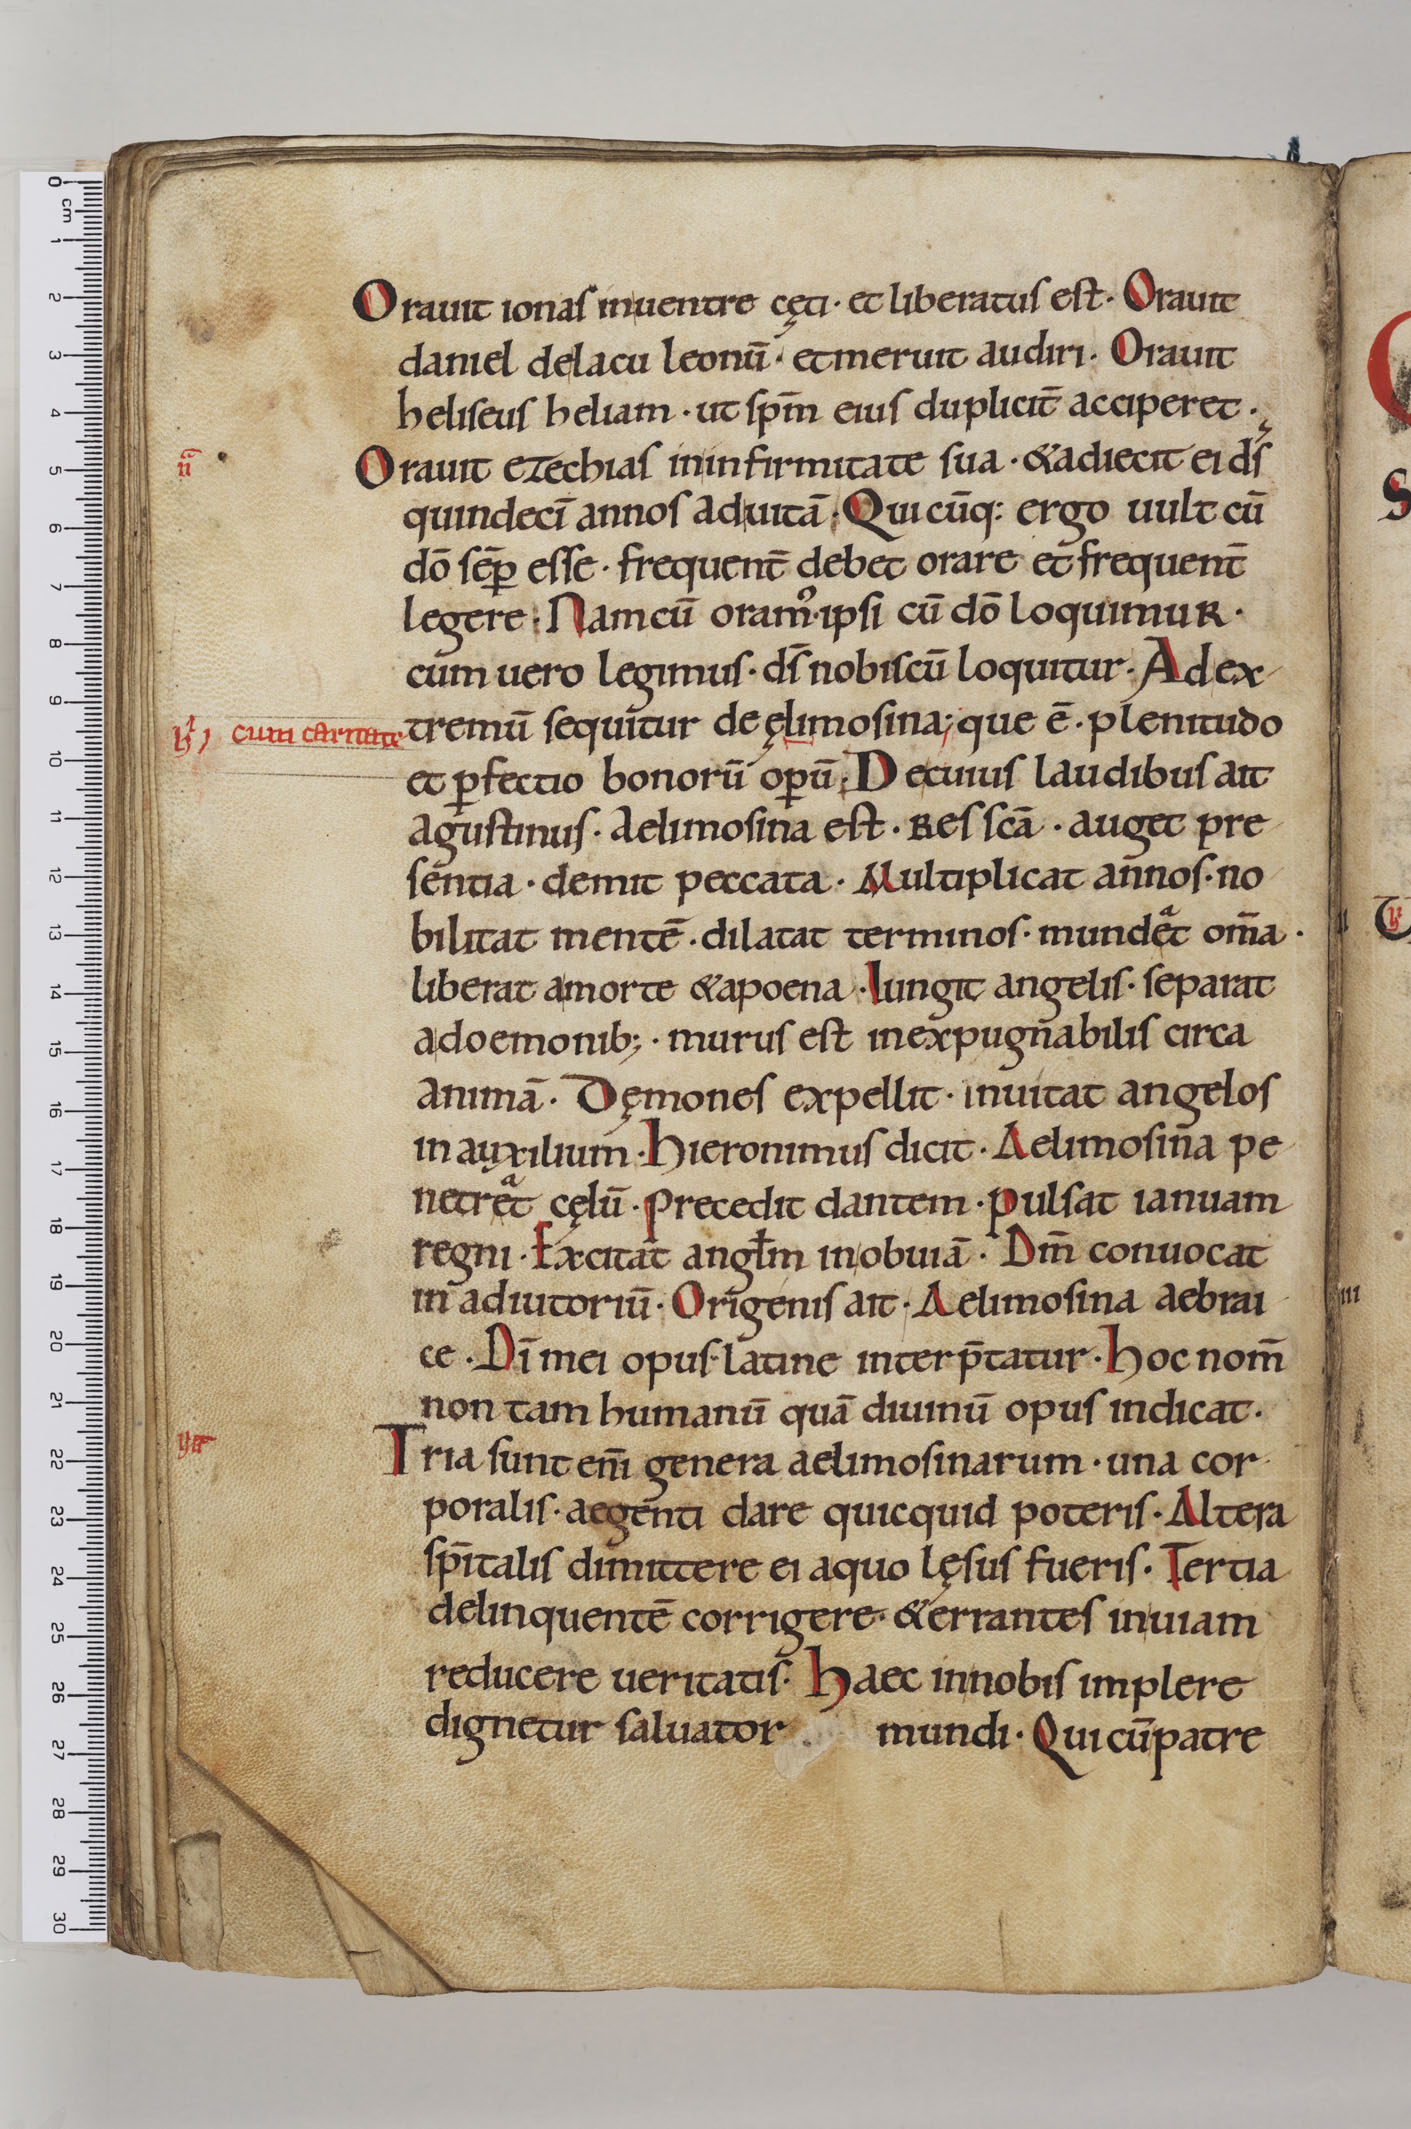 Orauit ionas inuentre cęti · et liberatus est · Orauit
daniel delacu leonū · etmeruit audiri · Orauit
heliseus heliam · ut sp̄m eius duplicit̄ acciperet ·
Orauit ezechias ininfirmitate sua · &adiecit ei dſ̄
quindecī annos aduitā · Quicūq: ergo uult cū
dō sēp̄ esse · frequent̄ debet orare et frequent̄
legere · Nam cū oram᷒ · ipsi cū dō loquimur ·
cum uero legimus · ds̄ nobiscū loquitur · Ad ex
cum caritate
tremū sequitur de ęlimosina; que ē · plenitudo
et ꝑfectio bonorū oꝑū · De cuius laudibus ait
agustinus · aelimosina est · Res scā · auget pre
sentia · demit peccata · Multiplicat annos · no
bilitat mentē · dilatat terminos · mundeͣt om̄a ·
liberat amorte &apoena · Iungit angelis · separat
adoemonib; · murus est inexpugnabilis circa
animā · Dęmones expellit · inuitat angelos
in auxilium · hieronimus dicit · Aelimosina pe
netreͣt cęlū · precedit dantem · pulsat ianuam
regni · Excitat angl̄m inobuiā · Dm̄ conuocat
in adiutoriū · Origenis ait · Aelimosina aebrai
ce · Dī mei opus · latine interp̄tatur · hoc nom̄
non tam humanū quā diuinū opus indicat ·
Tria sunt enī genera aelimosinarum · una cor
poralis · aegenti dare quicquid poteris · Altera
sp̄italis dimittere ei aquo lęsus fueris · Tertia
delinquentē corrigere · &errantes inuiam
reducere ueritatis · haec innobis implere
dignetur saluator · mundi · Qui cū patre